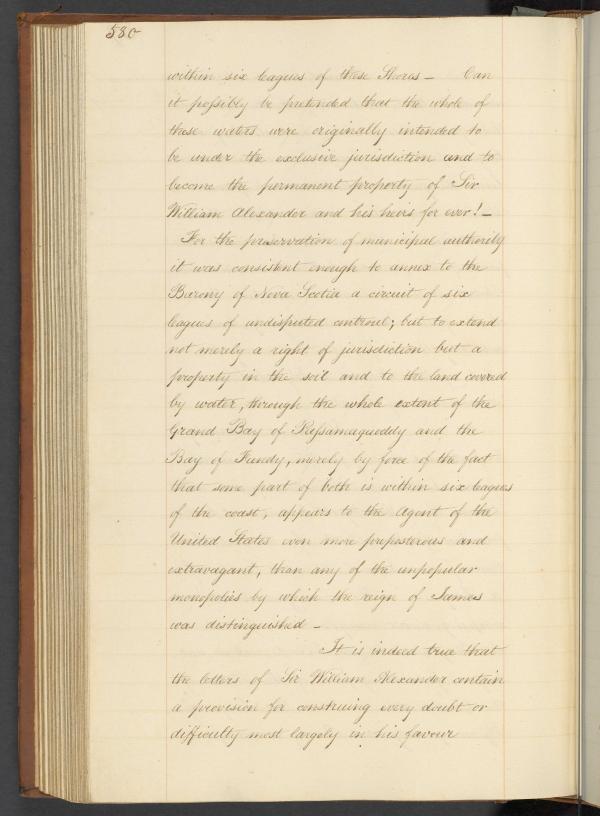 580
within six leagues of these Shores — Can
it possibly be pretended that the whole of
these waters were originally intended to
be under the exclusive jurisdiction and to
become the permanent property of Sir
William Alexander and his heirs for ever! —
For the preservation of municipal authority
it was consistent enough to annex to the
Barony of Nova Scotia a circuit of six
leagues of undisputed controul; but to extend
not merely a right of jurisdiction but a
property in the soil and to the land covered
by water, through the whole extent of the
Grand Bay of Passamaquoddy and the
Bay of Fundy, merely by force of the fact
that some part of both is within six leagues
of the coast, appears to the Agent of the
United States even more preposterous and
extravagant, than any of the unpopular
monopolies by which the reign of James
was distinguished —
It is indeed true that
the letters of Sir William Alexander contain
a provision for construing every doubt or
difficulty most largely in his favour